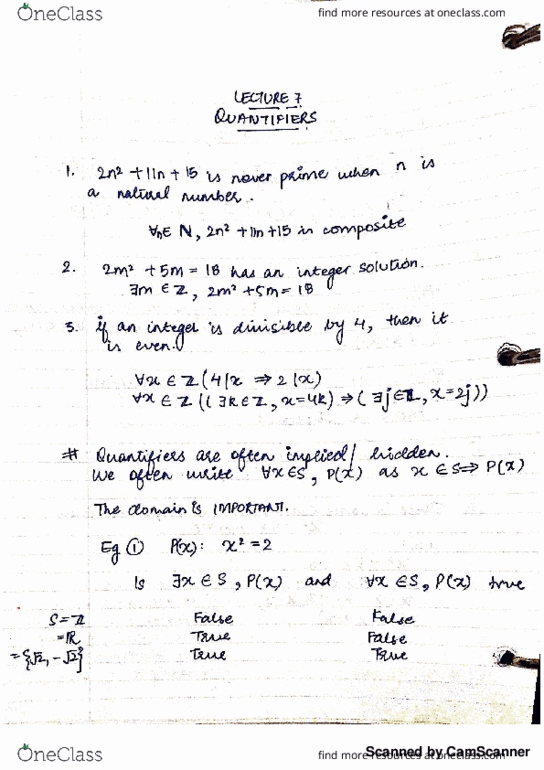 OneClass
find more resources at oneclass.com
LECTURE 7
QUANTIFIERS
1. 2n² + 11n + 15 is never prime when n is
a natural number.
∀n∈ N, 2n² + 11n + 15 is composite
2. 2m² + 5m = 18 has an integer solution.
∃m ∈ Z, 2m² + 5m = 18
3. if an integer is divisible by 4, then it
is even.
∀x ∈ Z (4|x ⇒ 2|x)
∀x ∈ Z ((∃k∈Z, x=4k) ⇒ (∃j∈Z, x=2j))
# Quantifiers are often implied/hidden.
We often write ∀x∈S, P(x) as x∈S ⇒ P(x)
The domain is IMPORTANT.
Eg ① P(x): x² = 2
Is ∃x ∈ S, P(x) and ∀x ∈S, P(x) true
S = Z False False
= R True False
= {√2, -√2} True True
OneClass
find more resources at oneclass.com
Scanned by CamScanner